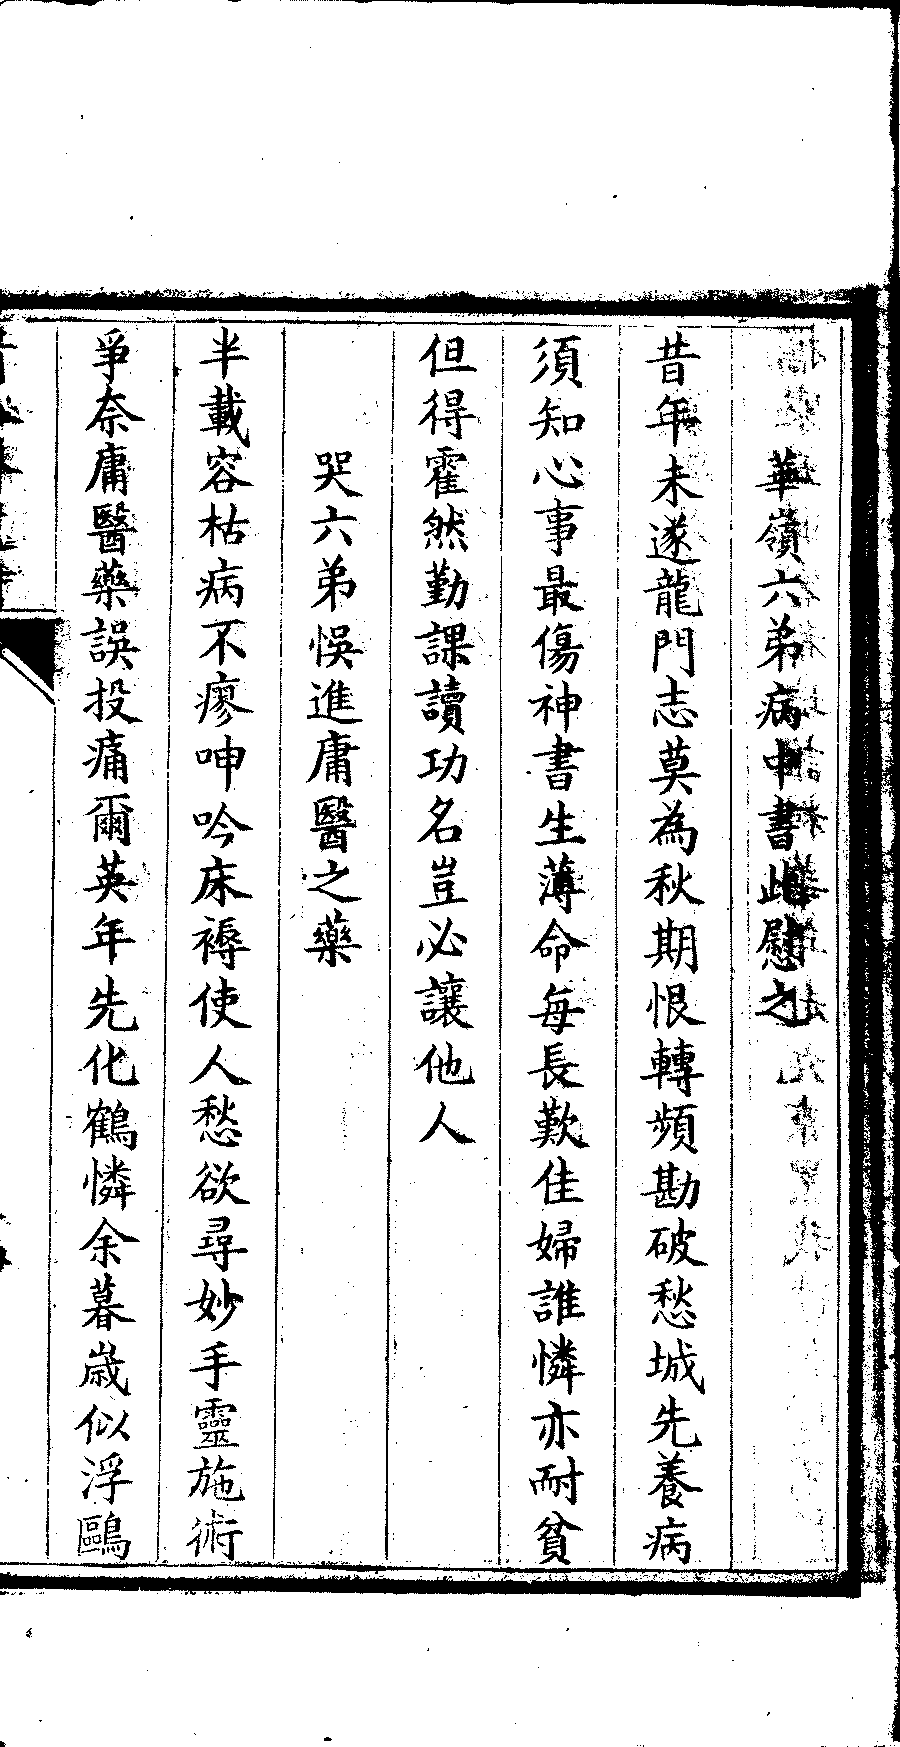 華嶺六弟病中書此慰之
昔年未遂龍門志莫為秋期恨轉頻勘破愁城先養病
須知心事最傷神書生薄命每長歎佳婦誰憐亦耐貧
但得霍然勤課讀功名豈必讓他人
哭六弟悞進庸醫之藥
半載容枯病不瘳呻吟床褥使人愁欲尋妙手靈施術
爭奈庸醫藥誤投痛爾英年先化鶴憐余暮歲似浮鷗